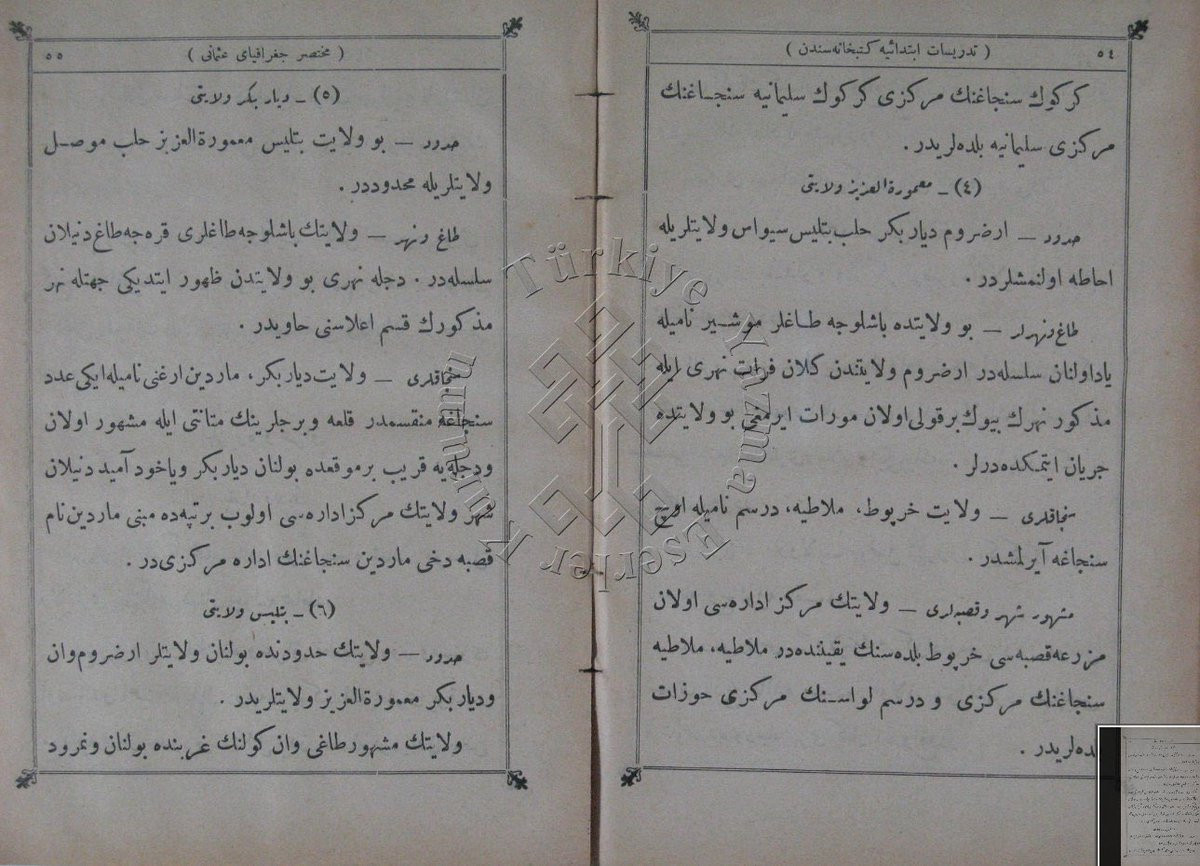 ٥٤
( تدريسات ابتدائيه كتبخانه‌سندن )
كركوك سنجاغنك مركزى كركوك سليمانيه سنجـاغنك
مركزى سليمانيه بلده‌لريدر .
(٤) ـ معمورة العزيز ولايتى
حدود — ارضروم دياربكر حلب بتليس سيواس ولايتلريله
احاطه اولنمشلردر .
طاغ ونهرلر — بو ولايتده باشلوجه طـاغلر موشـير ناميله
ياد اولنان سلسله‌در ارضروم ولايتندن كلان فرات نهرى ايله
مذكور نهرك بيوك برقولى اولان مورات ايرمغى بو ولايتده
جريان ايتمكده‌درلر .
سنجاقلرى — ولايت خربوط ، ملاطيه ، درسم ناميله اوچ
سنجاغه آيرلمشدر .
مشهور شهر وقصبه‌لرى — ولايتك مركز اداره‌سى اولان
مزرعه قصبه‌سى خربوط بلده‌سنك يقيننده‌در ملاطيه ، ملاطيه
سنجاغنك مركزى و درسم لواسـنك مركزى حوزات
بلده‌لريدر .
( مختصر جغرافياى عثمانى )
٥٥
(٥) ـ دياربكر ولايتى
حدود — بو ولايت بتليس معمورة العزيز حلب موصـل
ولايتلريله محدوددر .
طاغ ونهر — ولايتك باشلوجه طاغلرى قره‌جه طاغ دنيلان
سلسله‌در . دجله نهرى بو ولايتدن ظهور ايتديكى جهتله نهر
مذكورك قسم اعلاسنى حاويدر .
سنجاقلرى — ولايت دياربكر ، ماردين ارغنى ناميله ايكى عدد
سنجاغه منقسمدر قلعه وبرجلرينك متانتى ايله مشهور اولان
ودجله‌يه قريب برموقعده بولنان دياربكر وياخود آميد دنيلان
شهر ولايتك مركز اداره‌سى اولوب برتپه‌ده مبنى ماردين نام
قصبه دخى ماردين سنجاغنك اداره مركزى‌در .
(٦) ـ بتليس ولايتى
حدود — ولايتك حدودنده بولنان ولايتلر ارضروم وان
ودياربكر معمورة العزيز ولايتلريدر .
ولايتك مشهور طاغى وان كولنك غربنده بولنان ونمرود
Türkiye Yazma Eserler Kurumu